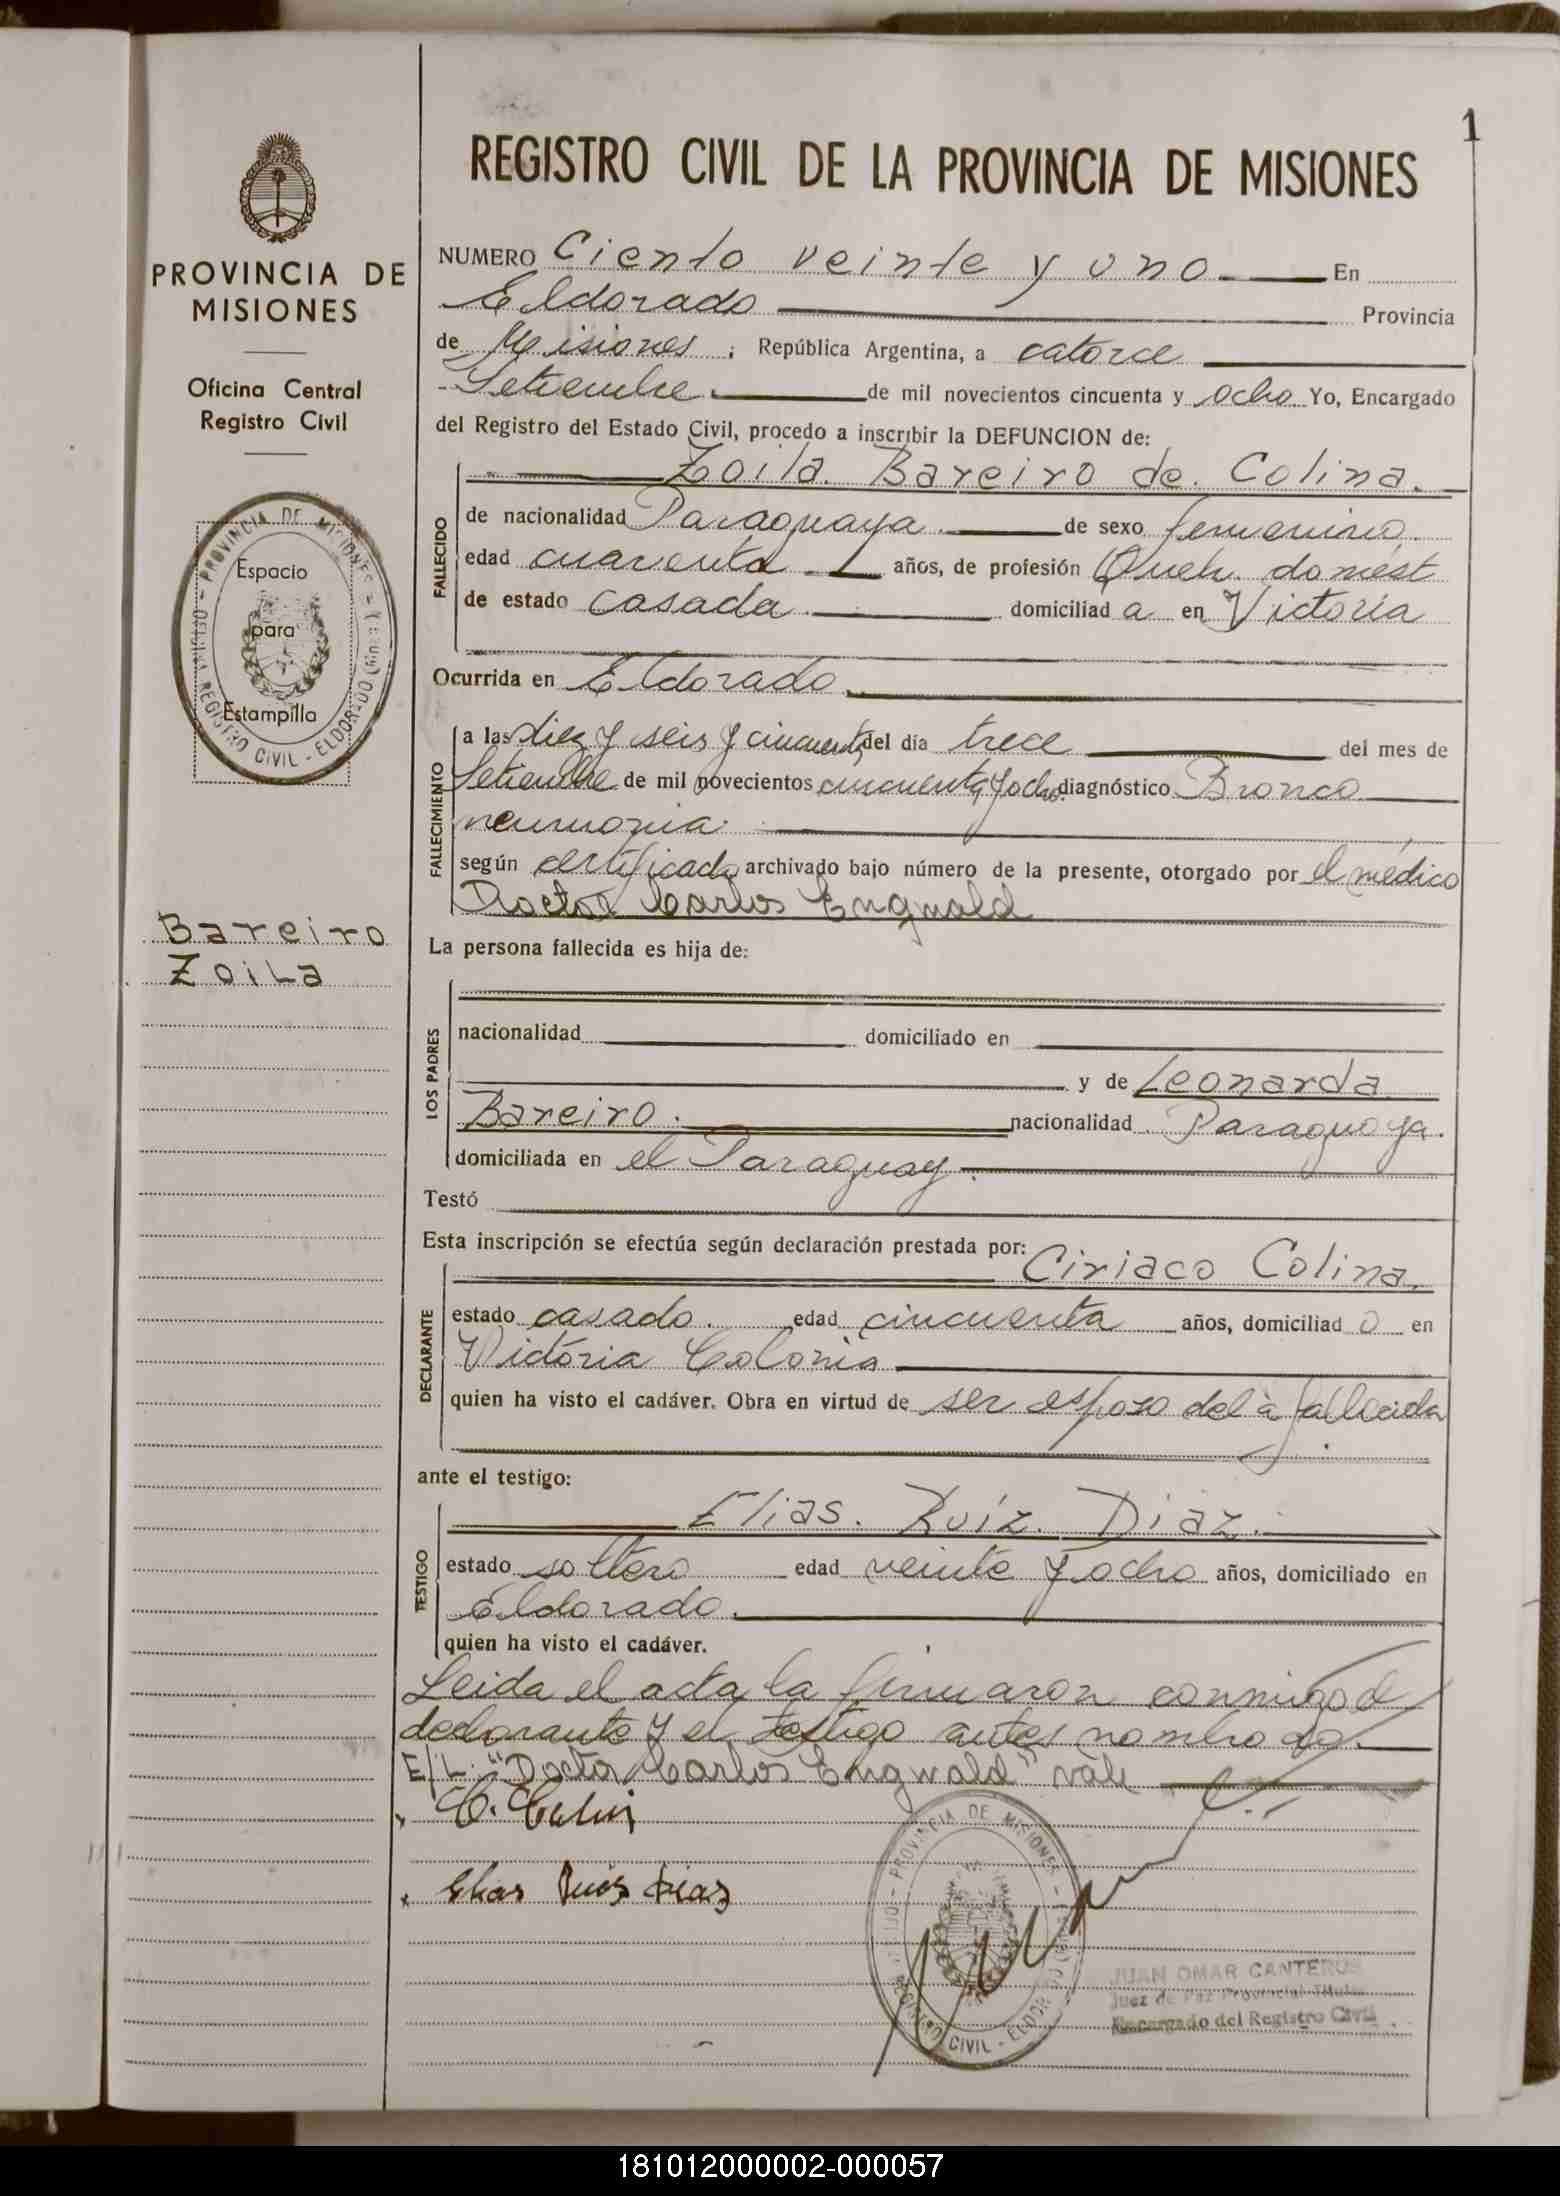 1
REGISTRO CIVIL DE LA PROVINCIA DE MISIONES
PROVINCIA DE
MISIONES
Oficina Central
Registro Civil
PROVINCIA DE MISIONES
REGISTRO CIVIL - ELDORADO
Espacio
para
Estampilla
Bareiro
Zoila
NUMERO Ciento veinte y uno En
Eldorado Provincia
de Misiones, República Argentina, a catorce
Setiembre de mil novecientos cincuenta y ocho Yo, Encargado
del Registro del Estado Civil, procedo a inscribir la DEFUNCION de:
Zoila Bareiro de Colina.
FALLECIDO
de nacionalidad Paraguaya de sexo femenino
edad cuarenta años, de profesión Queh. domést
de estado casada domiciliad a en Victoria
Ocurrida en Eldorado
FALLECIMIENTO
a las diez y seis y cincuenta del día trece del mes de
Setiembre de mil novecientos cincuenta y ocho diagnóstico Bronco
neumonia
según certificado archivado bajo número de la presente, otorgado por el médico
Doctor Carlos Engwald
La persona fallecida es hija de:
LOS PADRES
nacionalidad domiciliado en
y de Leonarda
Bareiro. nacionalidad Paraguaya.
domiciliada en el Paraguay.
Testó
Esta inscripción se efectúa según declaración prestada por:
Ciriaco Colina.
DECLARANTE
estado casado. edad cincuenta años, domiciliad o en
Victoria Colonia
quien ha visto el cadáver. Obra en virtud de ser esposo de la fallecida
ante el testigo:
Elias. Ruíz. Diaz.
TESTIGO
estado soltero edad veinte y ocho años, domiciliado en
Eldorado.
quien ha visto el cadáver.
Leida el acta la firmaron conmigo el
declarante y el testigo antes nombrado.
E/L: "Doctor Carlos Engwald" vale
C. Colina
Elias Ruis Dias
PROVINCIA DE MISIONES
REGISTRO CIVIL - ELDORADO
JUAN OMAR CANTEROS
Juez de Paz Provincial Titular
Encargado del Registro Civil
181012000002-000057